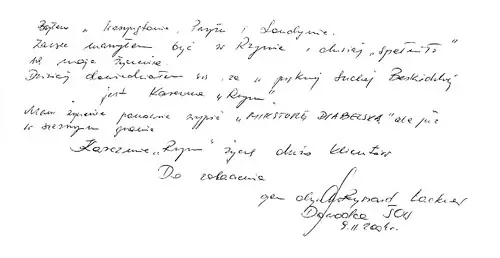 Byłem w Waszyngtonie, Paryżu i Londynie.
Zawsze marzyłem być w Rzymie i dzisiaj „spełniło”
się moje życzenie.
Dzisiaj dowiedziałem się, że w pięknej Suchej Beskidzkiej
jest Karczma „Rzym”.
Mam życzenie ponownie wypić „MIKSTURĘ DIABELSKĄ” ale już
w szerszym gronie
Karczmie „Rzym” życzę dużo klientów
Do zobaczenia
gen. dyw. Ryszard Lackner
Dowódca ŚOW
9.II.2004r.